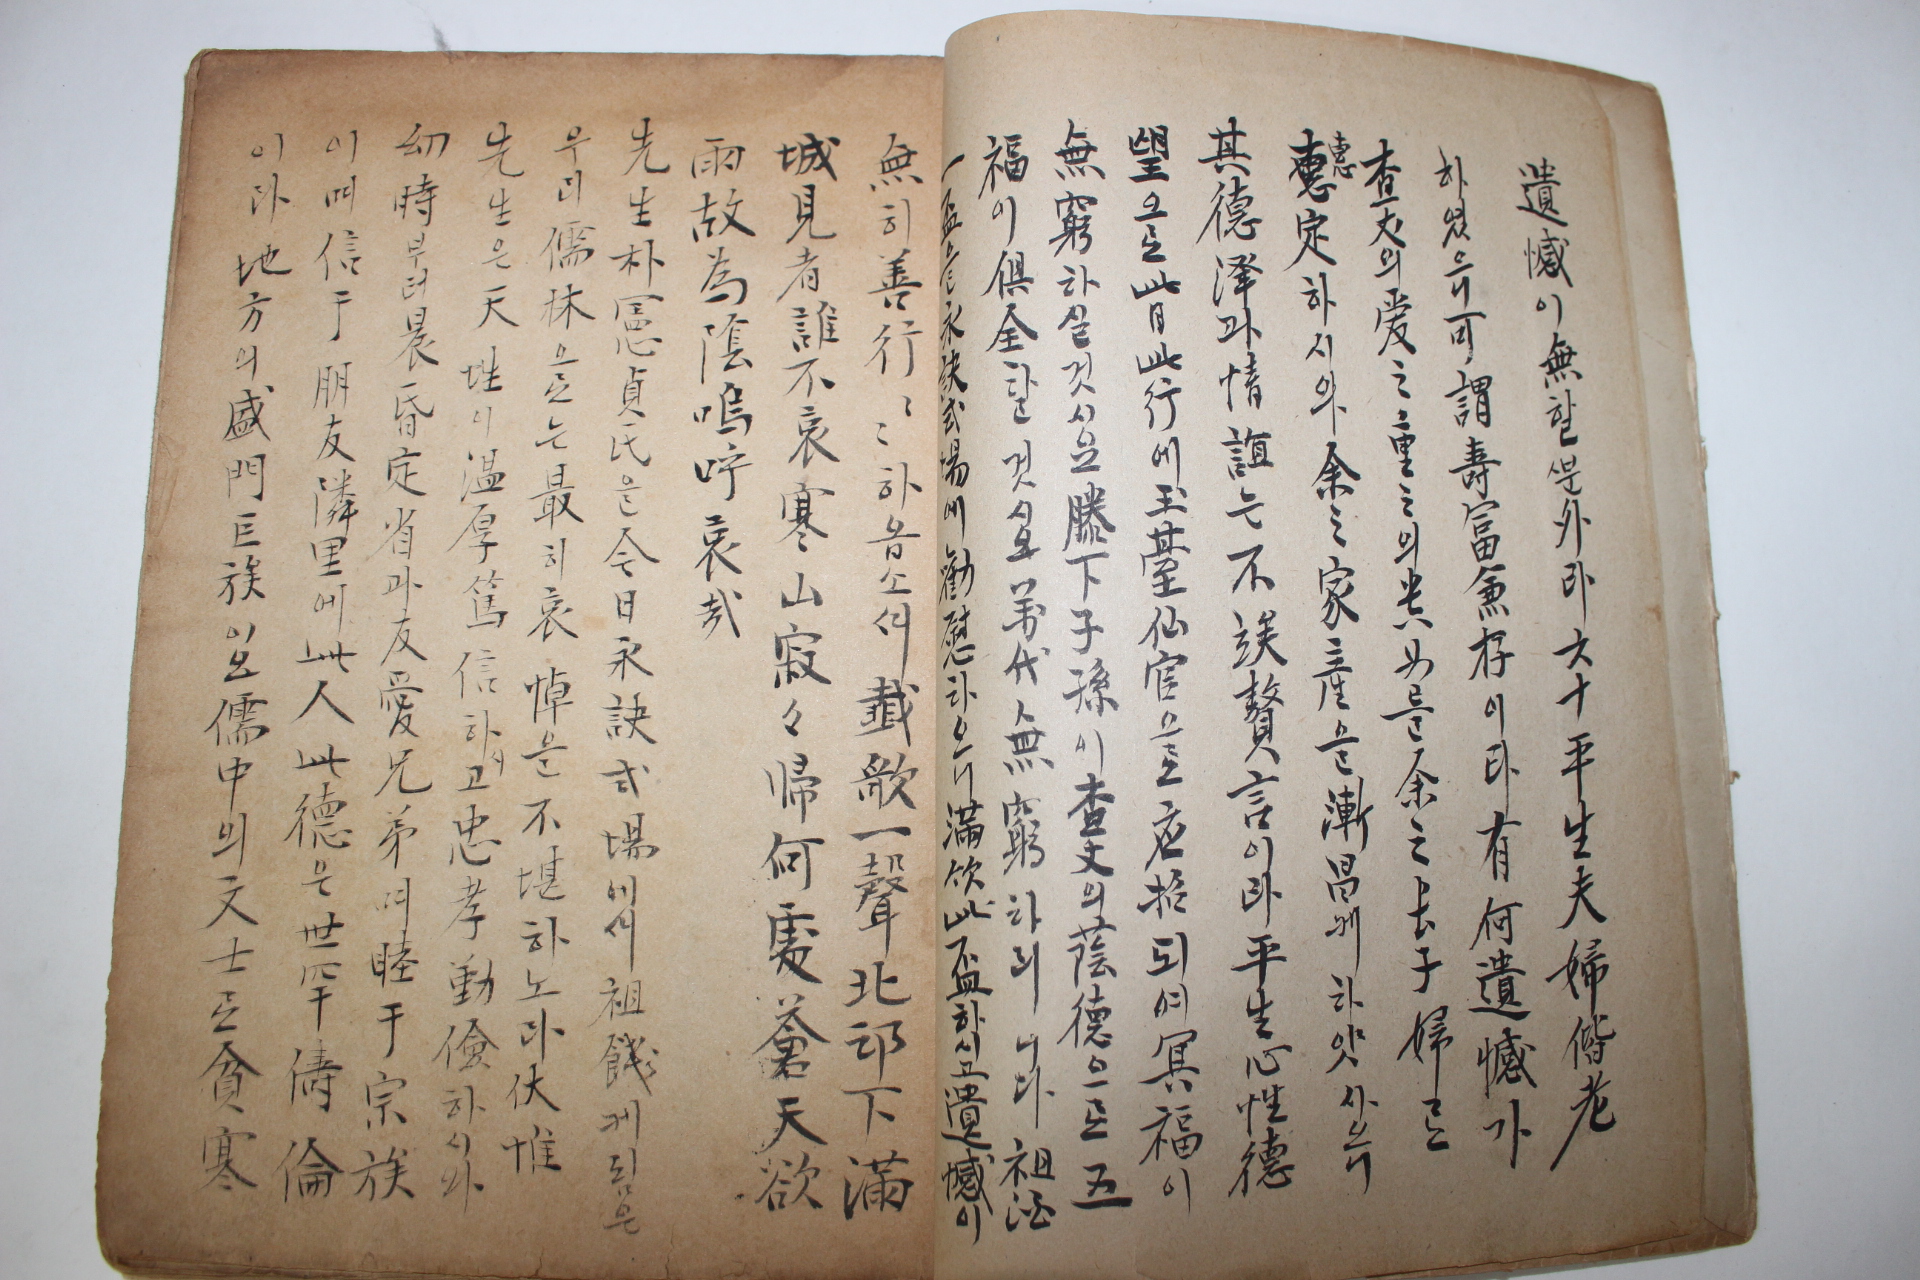 遺憾이無할뿐外라六十平生夫婦偕老
하얏으니可謂壽富兼存이라有何遺憾가
查丈의爱之重之의 余之長子婦로
惠
惠定하시와余之家産은漸昌케하얏사으니
其德泽과情誼는不竢贅言이라平生心性德
望으로此月此行에玉臺仙官으로 되여冥福이
無窮하실것시요膝下子孫이查丈의蔭德으로五
福이俱全할것시요萬代無窮하리니다祖酒
一盃을永訣式場에勸慰하오니滿飮此盃하시고遺憾이
無히善行〻〻하옵소셔 歌一聲北邙下滿
城見者誰不哀寒山寂々帰何處蒼天欲
雨故為陰嗚呼哀哉
先生朴憲貞氏은今日永訣式場에셔祖餞케됨은
우리儒林으로는最히哀悼을不堪하노라伏惟
先生은天性이溫厚篤信하고忠孝勤儉하시와
幼時부터晨昏定省과友愛兄弟며睦于宗族
이며信于朋友隣里에此人此德은世罕儔倫
이라地方의盛門巨族이요儒中의文士로貧寒